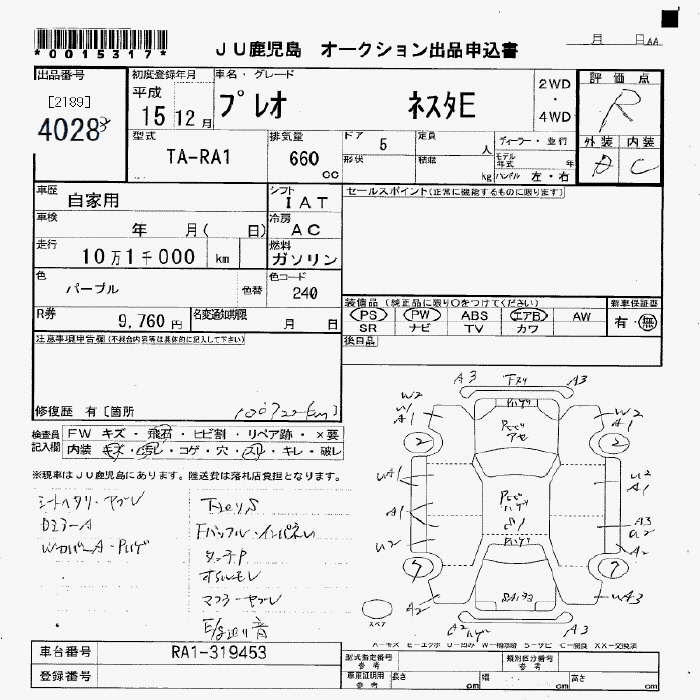 *0015317*
JU鹿児島 オークション出品申込書
月 日 AA
出品番号
[2189]
4028
初度登録年月
平成
15 12 月
車名・グレード
プレオ ネスタE
2WD
・
4WD
評価点
R
外装 内装
D C
型式
TA-RA1
排気量
660
cc
ドア 5
形状
定員 人
積載 kg
ディーラー・並行
モデル年式 年
ハンドル 左・右
車歴
自家用
シフト
IAT
セールスポイント(正常に機能するものに限ります)
車検
年 月( 日)
冷房
AC
走行
10万1千000 km
燃料
ガソリン
色
パープル
色替
色コード
240
装備品(純正品に限り○をつけてください)
PS PW ABS エアB AW
SR ナビ TV カワ
新車保証書
有・無
R券
9,760円
名変通知期限
月 日
後日品
注意事項申告欄(不総合内容等は具体的に記入して下さい)
修復歴 有[箇所
(00722km)
検査員
記入欄
FW キズ・飛石・ヒビ割・リペア跡・×要
内装 キズ・ヨゴレ・コゲ・穴・スレ・キレ・破レ
※現車はJU鹿児島にあります。陸送費は落札店負担となります。
シートヘタリ・ヤブレ
Wカバー A・Pハゲ
タッチP
オイルモレ
マフラーヤブレ
E/g廻り音
A3 A3
W2 W2
A1 A1
Pハゲ
2 2
UA1 U2
A1
A1 A3
U2 U2
A2
7 7
A2 WA3
スペア
A2 ハゲ A3
A-キズ E-エクボ U-凹み W-補修跡 S-サビ C-腐食 XX-交換済
車台番号
RA1-319453
登録番号
型式指定番号
参考
類別区分番号
参考
車庫証明用
参考
長さ cm
幅 cm
高さ cm